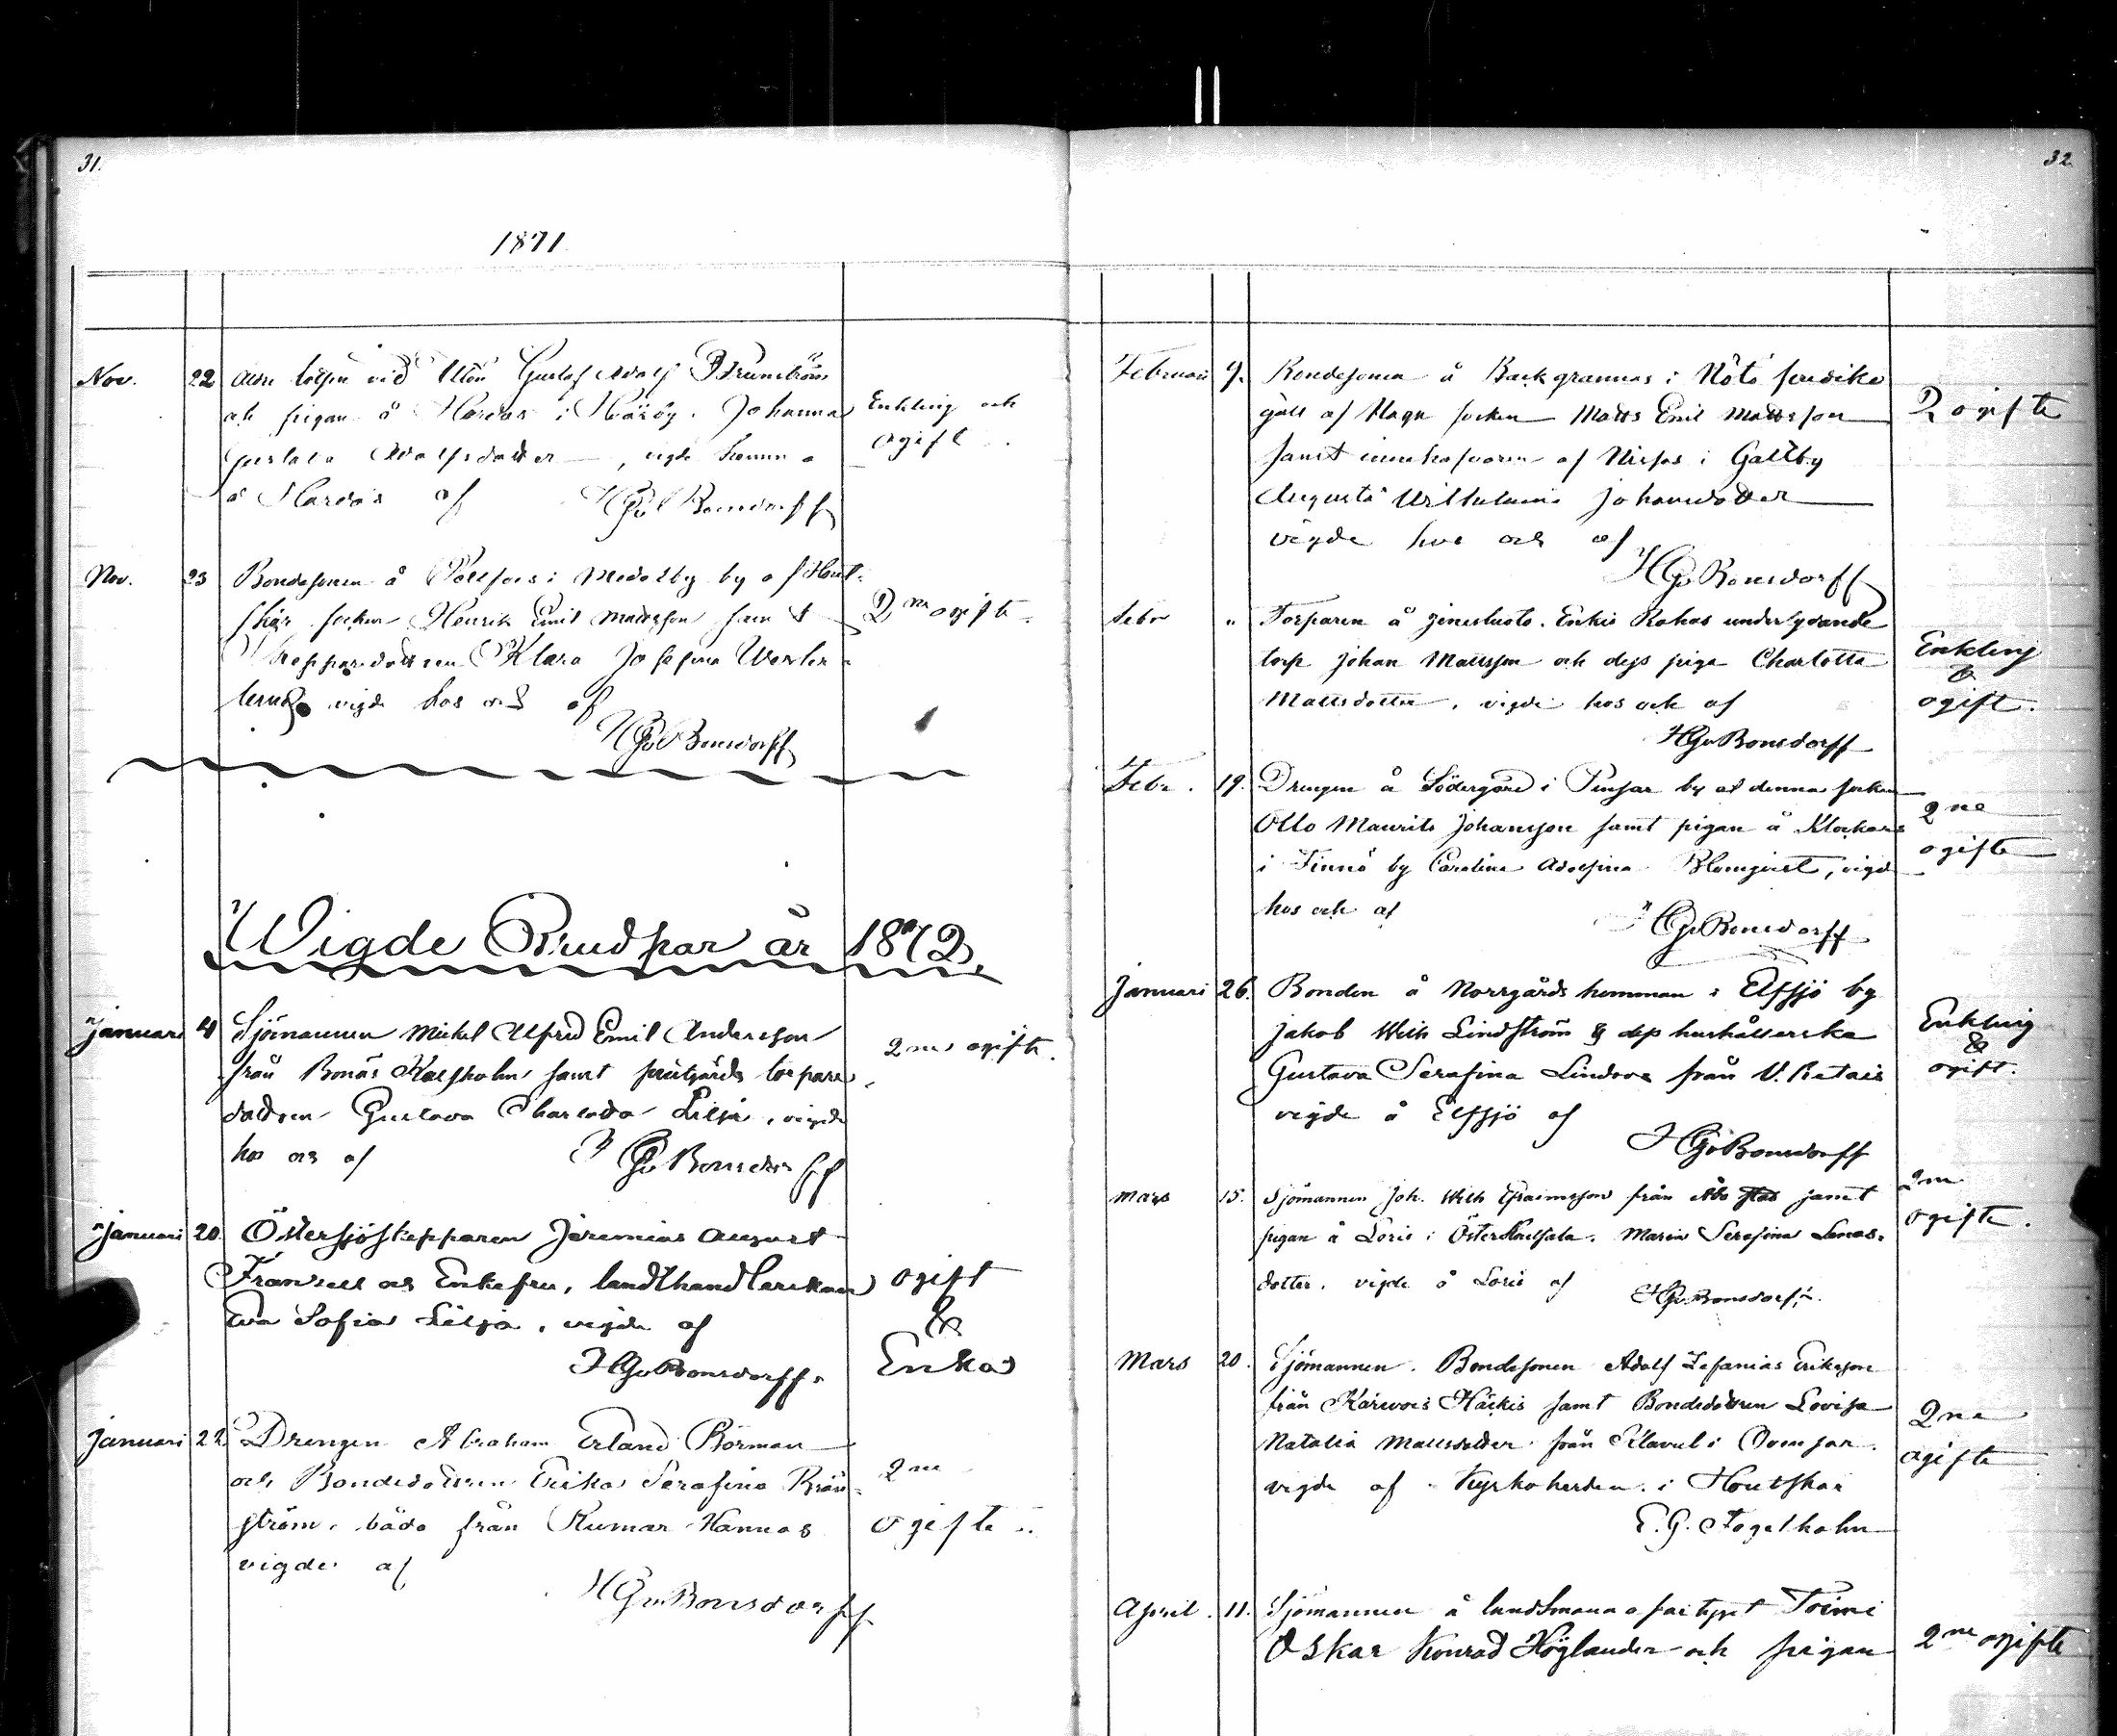 31.
1871
Nov. 22 vid Utön Gustaf Adolf Brunström
och pigan å Hardas i Johanna
Gustava Adolfsdotter, vigde hemma
å Hardas af HGvBonsdorff
Enkling och
ogift
Nov. 23 Bondesonen å i Medelby by af Hout-
skär socken Henrik Emil Mattsson samt
Skeppsredottren Klara Josefina Wester-
lund vigde hos och af
HGvBonsdorff
2ne ogifte
Wigde Brudpar år 1872.
Januari 4 Sjömannen Mickel Alfred Emil Andersson
från Bonäs Karsholm samt torpare
dottren Gustava Charlotta Lilja, vigde
hos och af HGvBonsdorff
2ne ogifte.
Januari 20 Östersjöskepparen Jeremias August
Fransell och Enkefru, landthandlerskan
Eva Sofia Lilja, vigde af
HGvBonsdorff.
ogift
&
Enka
Januari 22 Drengen Abraham Erland Börman
och Bondedottren Erika Serafina Brän-
ström, båda från Kumar Hannas
vigde af
HGvBonsdorff
2ne
ogifte
32
Februari 9. Bondesonen å Backgrannas i Nötö predika
gäll af Nagu socken Matts Emil Mattsson
samt af Nissas i Galtby
Augusta Wilhelmina Johansdotter
vigde hos och af
HGvBonsdorff
2 ogifte
Febr " Torparen å Enkis Rohas underlydande
torp Johan Mattsson och dess piga Charlotta
Mattsdotter, vigde hos och af
HGvBonsdorff
Enkling
&
ogift.
Febr. 19. Drengen å Södergård i Pensar by af denna socken
Otto Maurits Johansson samt pigan å Klockars
i Finnö by Carolina Adolfina Blomqvist, vigde
hos och af
HGvBonsdorff
2ne
ogifte
Januari 26. Bonden å Norrgårds hemman i Elfsjö by
Jakob Wilh Lindström & dess hushållerska
Gustava Serafina Lindroos från V. Retais
vigde å Elfsjö af
HGvBonsdorff
Enkling
&
ogift.
Mars 15. Sjömannen Joh. Wilh Efraimsson från Åbo stad samt
pigan å Loris i Österskalsala. Maria Serafina
dotter. vigde å Loris af HGvBonsdorff.
2ne
ogifte.
Mars 20. Sjömannen. Bondesonen Adolf Zefanias Eriksson
från Käckis samt Bondedottren Lovisa
Natalia Mattsdotter från Klavuls i Ovensor.
vigde af Kyrkoherden i Houtskär
E. G. Fogelholm
2ne
ogifte
April. 11. Sjömannen å fartyget Toimi
Oskar Konrad Höglander och pigan
2ne ogifte